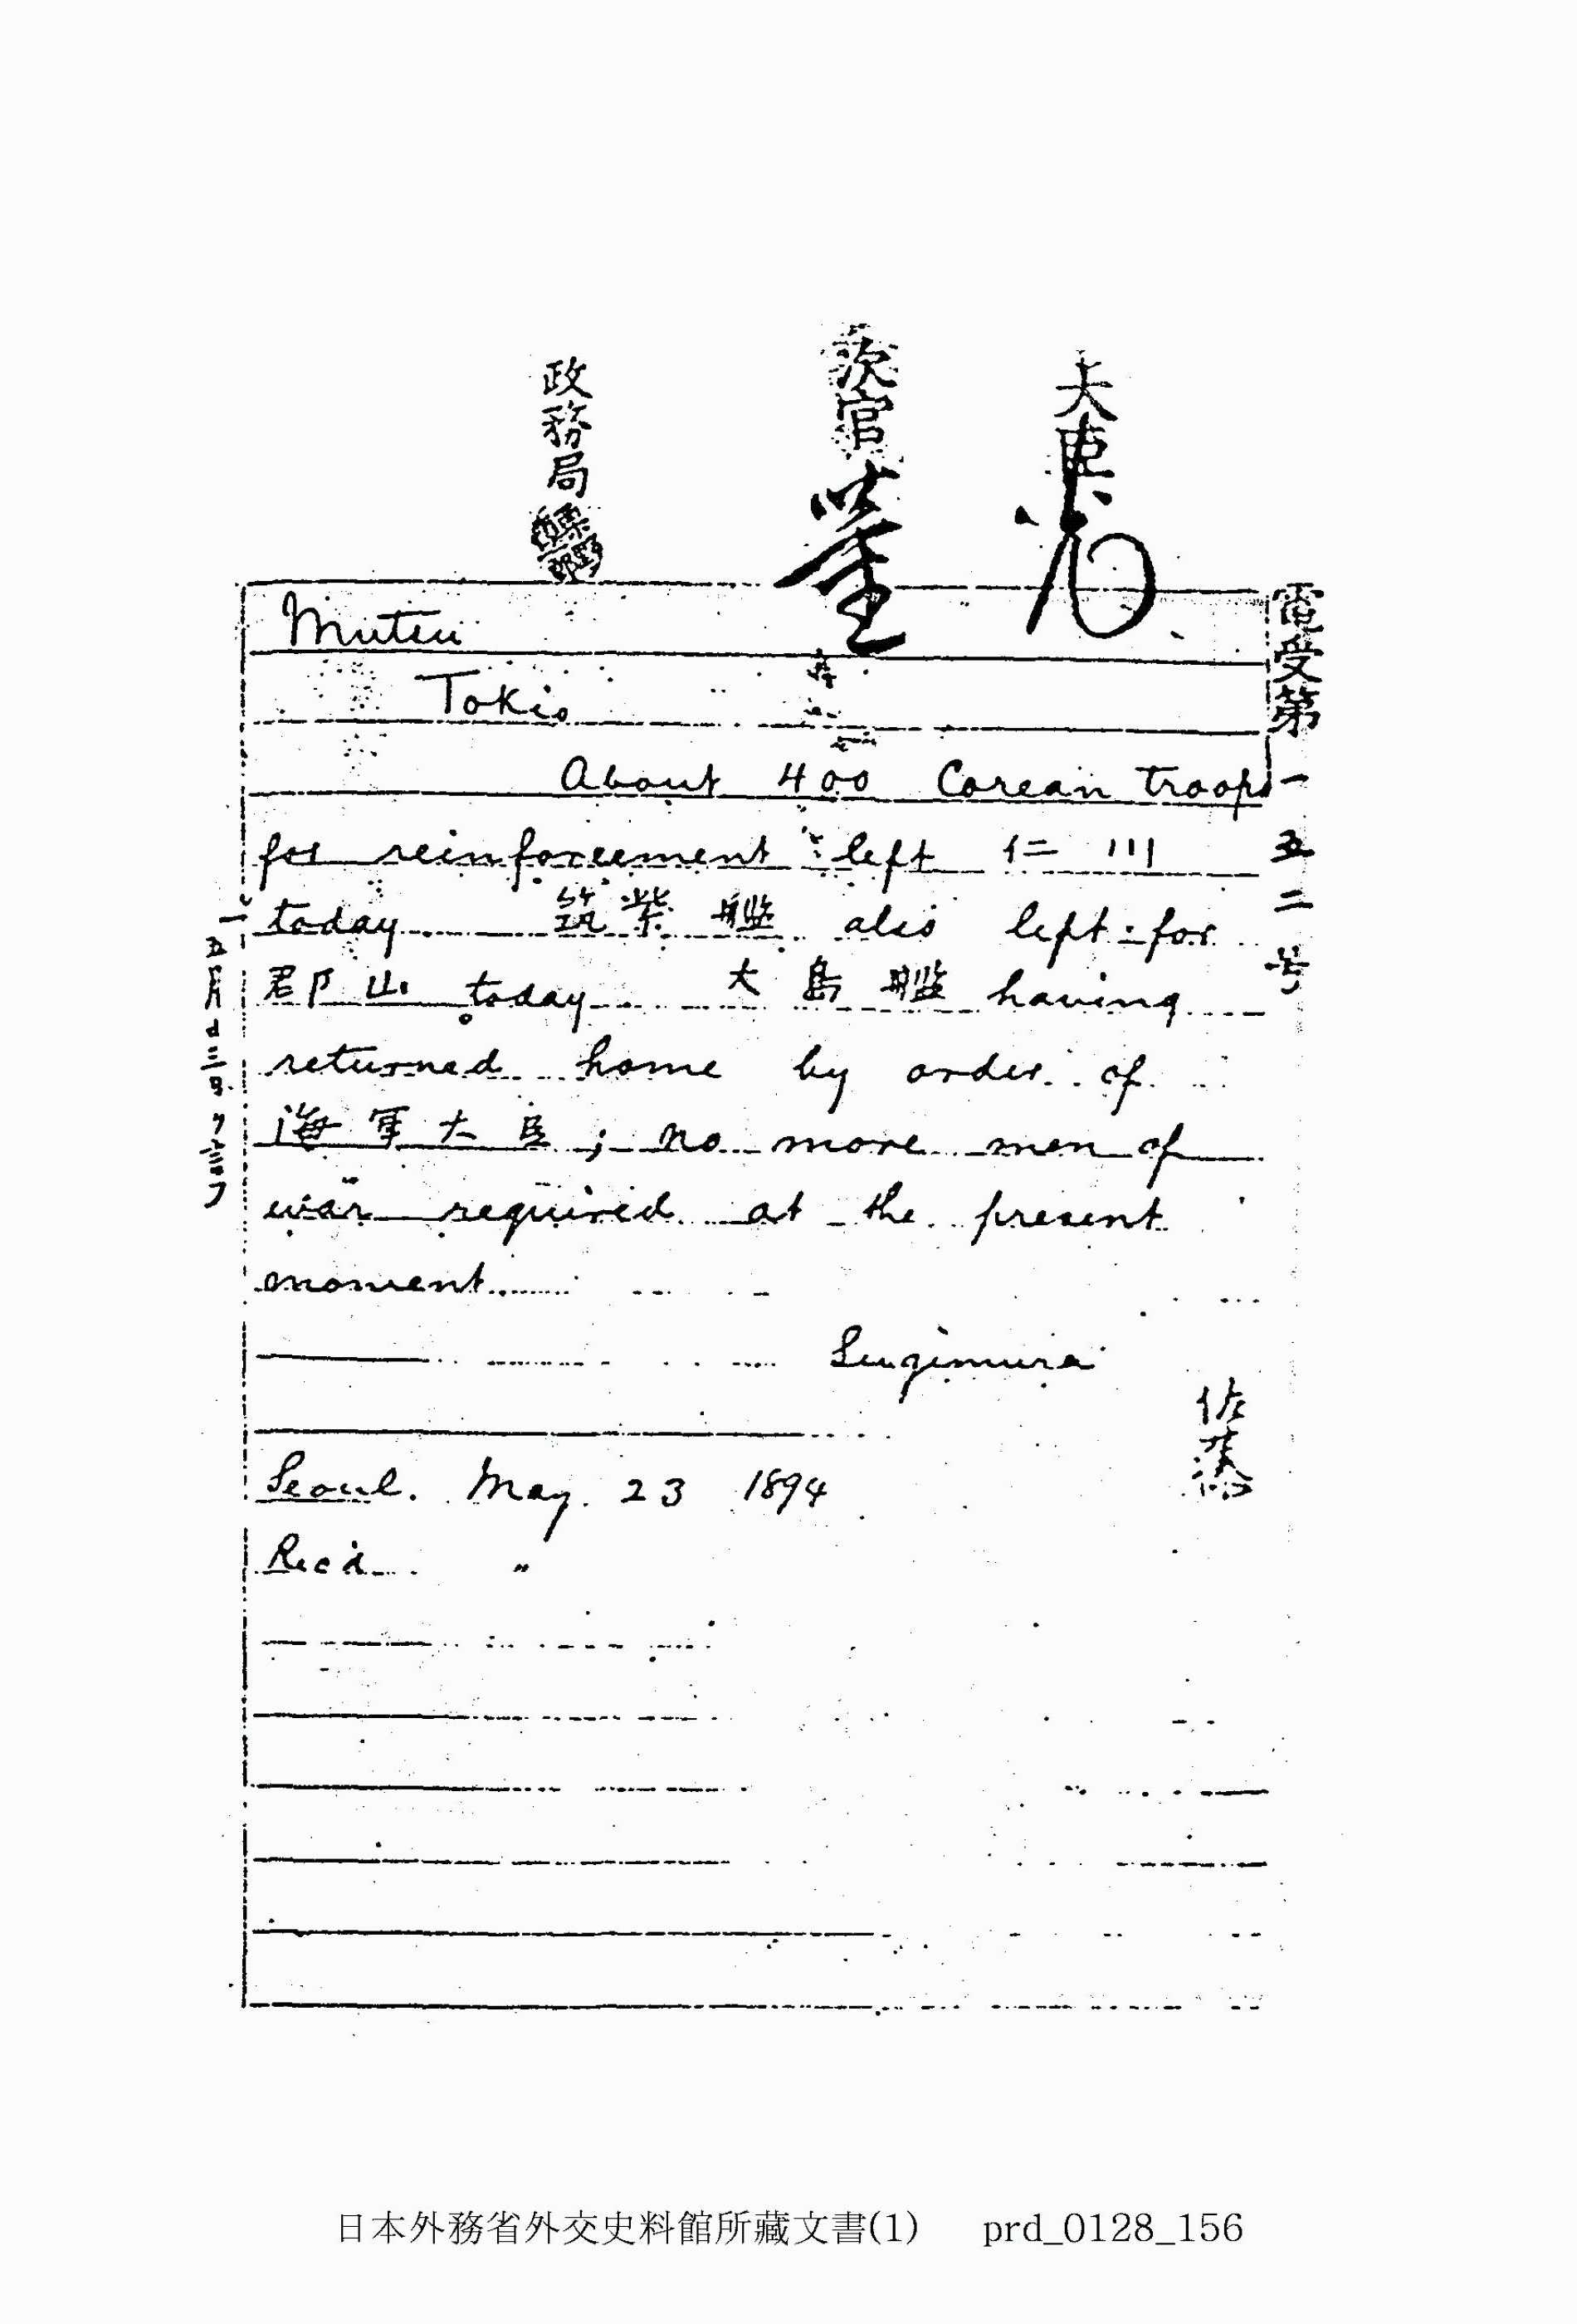 大臣
次官
政務局
電受第一五二号
Mutsu
Tokio
About 400 Corean troops
for reinforcement left 仁川
today. 筑紫艦 also left for
郡山 today. 大島艦 having
returned home by order of
海軍大臣; no more men of
war required at the present
moment.
Sugimura
佐藤
Seoul. May. 23 1894
Rec'd "
日本外務省外交史料館所藏文書(1) prd_0128_156